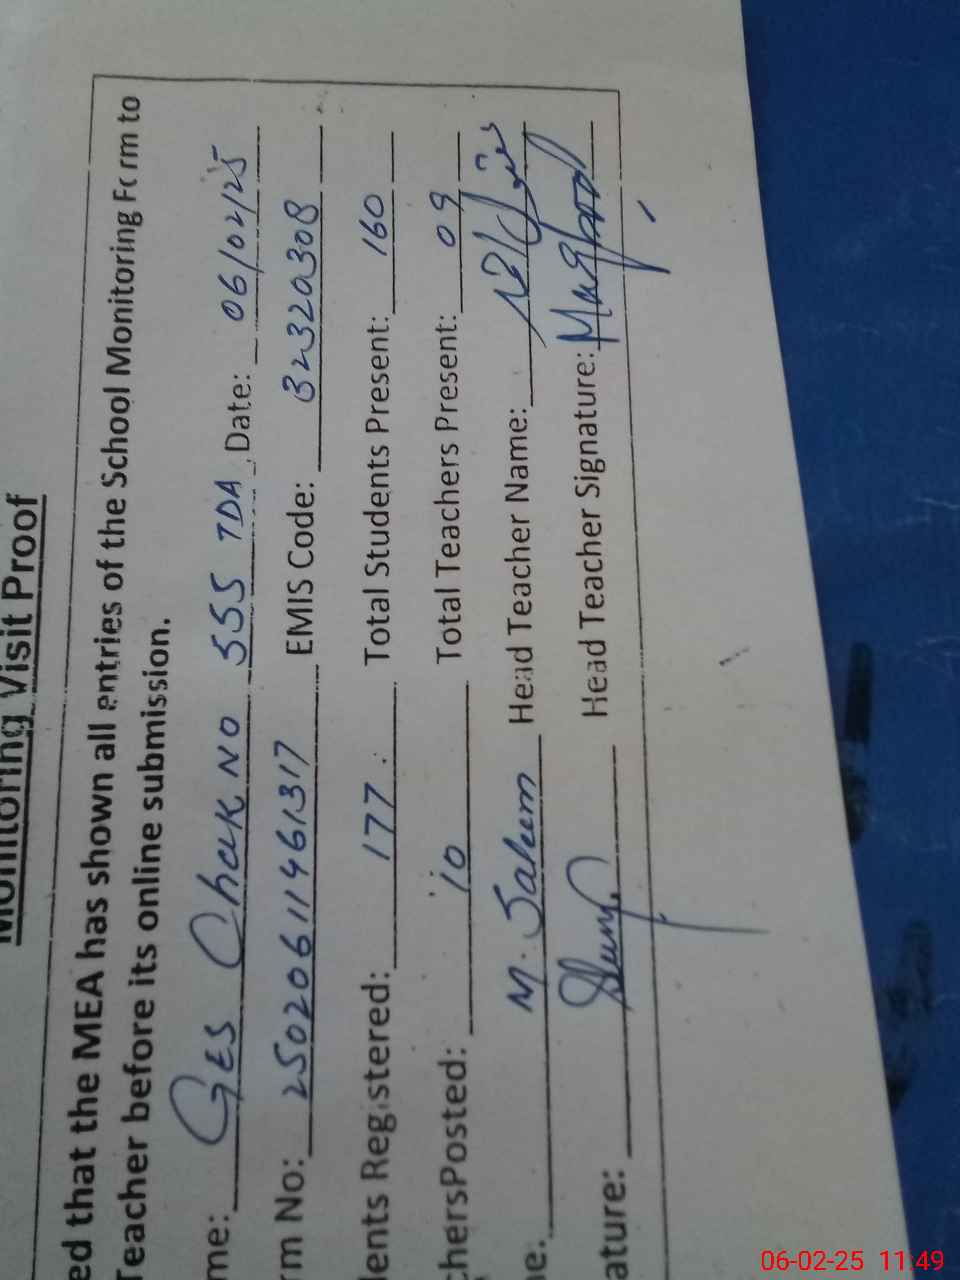 Monitoring Visit Proof
ed that the MEA has shown all entries of the School Monitoring Form to
Teacher before its online submission.
me: GES Chak NO 555 TDA Date: 06/02/25
rm No: 25020611461317 EMIS Code: 32320308
dents Registered: 177 Total Students Present: 160
chersPosted: 10 Total Teachers Present: 09
ne: M. Saleem Head Teacher Name:
ature: Head Teacher Signature: Maqbool
06-02-25 11:49